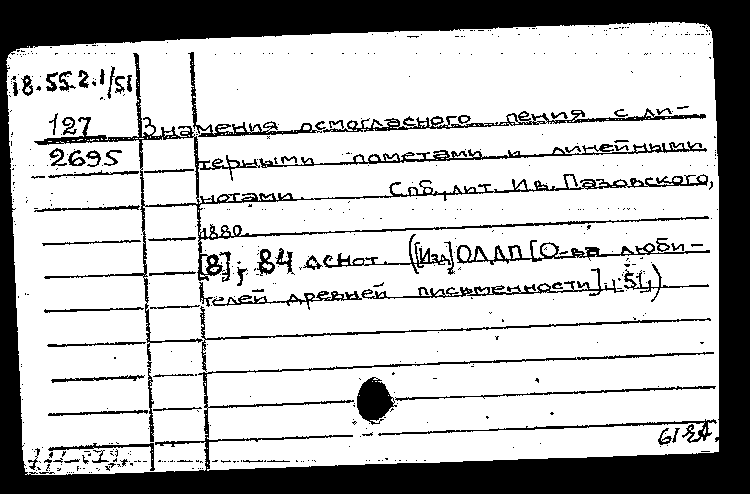 18.55.2.1/51
127 Знамения осмогласного пения с ли-
2695 терными пометами и линейными
нотами. Спб., лит. Ив. Пазовского,
1880.
[8], 84 с. нот. ([Изд] ОЛДП [О-ва люби-
телей древней письменности], 51,)